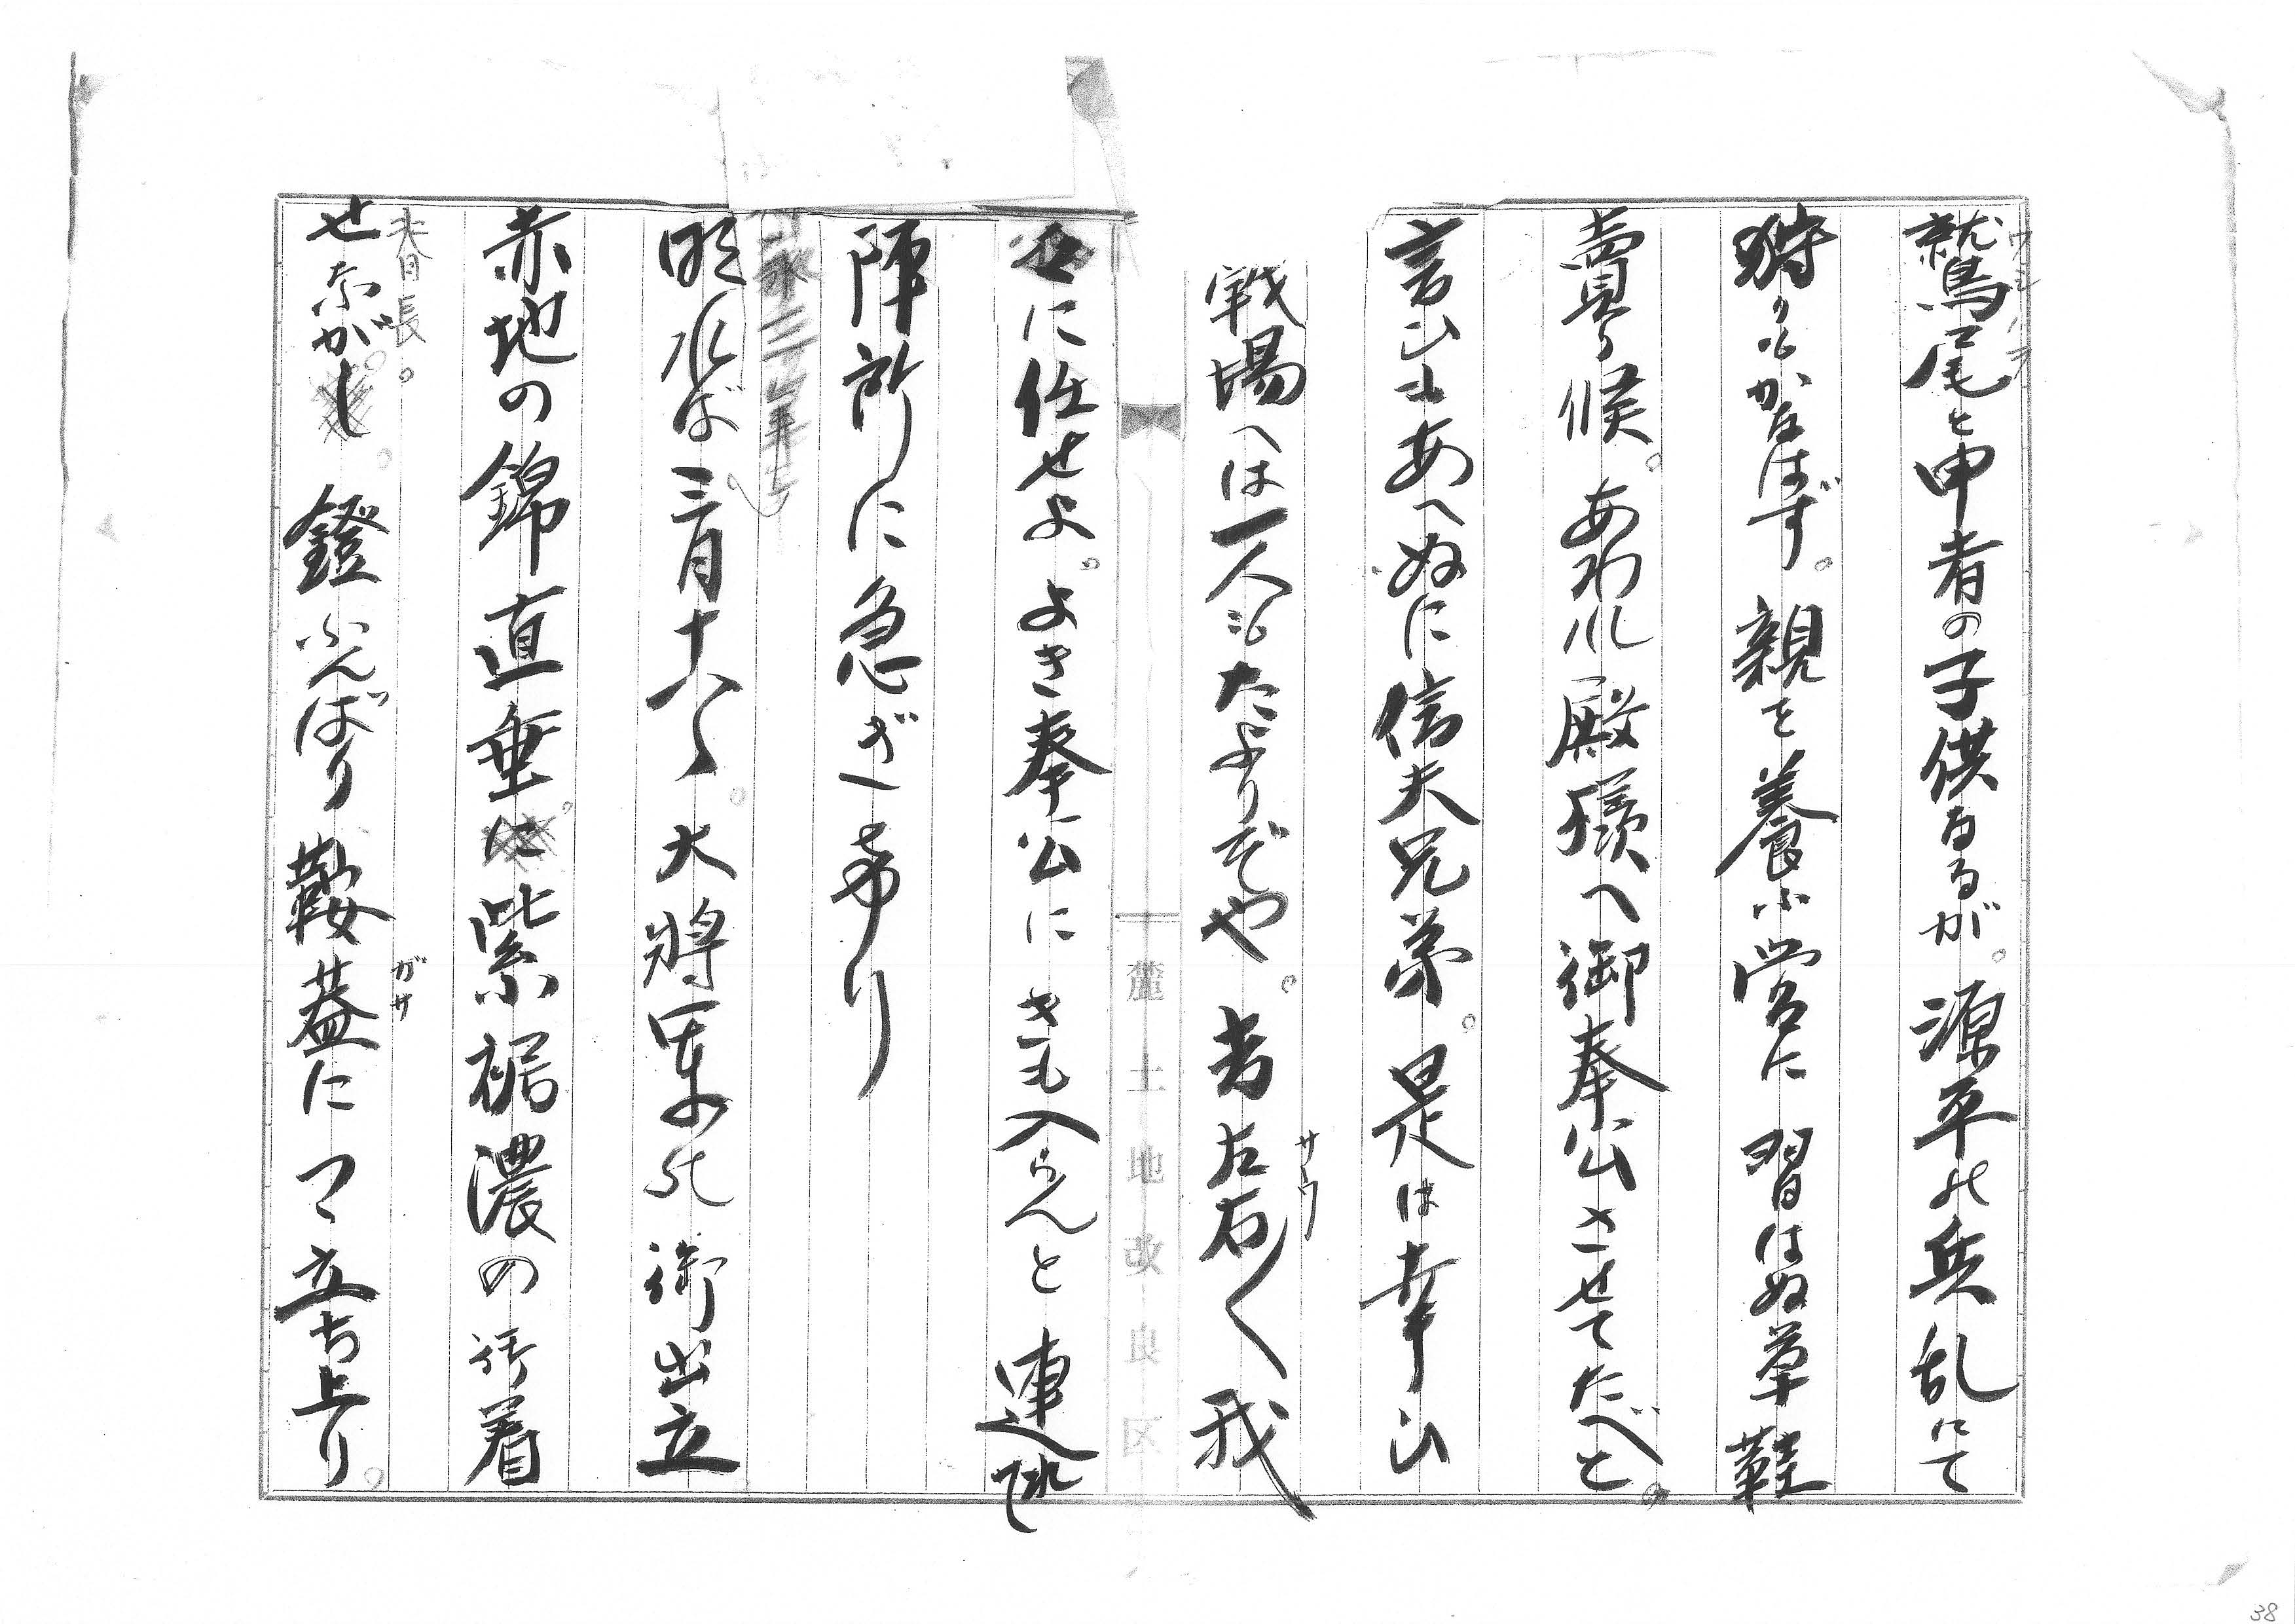 鷲尾と申者の子供なるが。源平の兵乱にて
ワシノヲ
狩りもかなはず。親を養ふ営に習はぬ草鞋
賣り候。あわれ殿様へ御奉公させてたべと。
言ひもあへぬに信夫兄弟。是は幸ひ
戦場へは一人もたよりぞや。
左右く我
サウ
に任せよ。よき奉公にきも入らんと連れて
陣所に急ぎ帰り
永三年
明れば三月十八
。大將軍の御出立
赤地の錦直垂に。紫裾濃の御着
春長。
せながし
鐙ふんばり鞍蓋につゝ立ち上り。
がサ
麓土地改良区
38